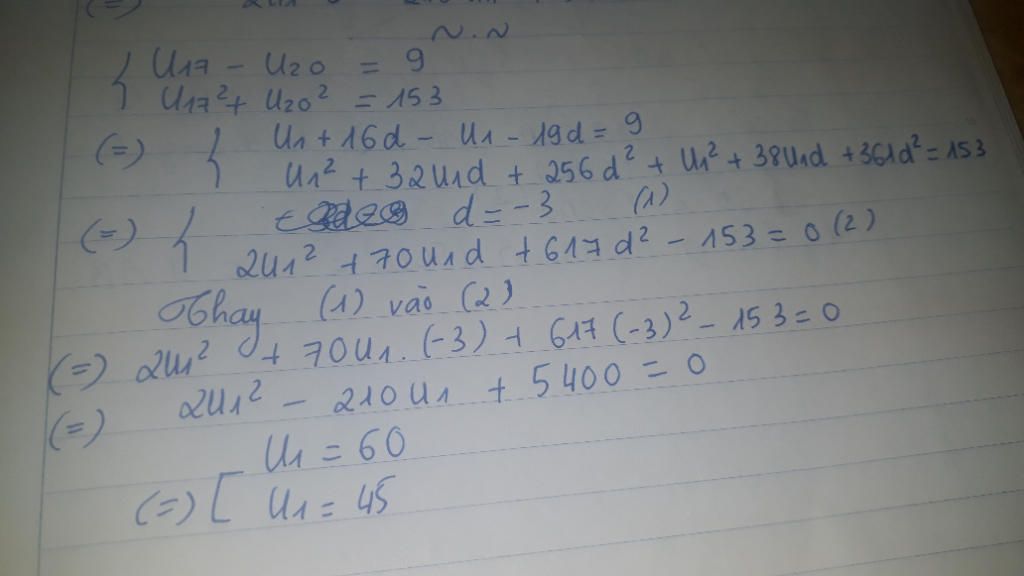 N.N
{ U17 - U20 = 9
U17² + U20² = 153
(=) { U1 + 16d - U1 - 19d = 9
U1² + 32U1d + 256d² + U1² + 38U1d + 361d² = 153
(=) { d = -3 (1)
2U1² + 70U1d + 617d² - 153 = 0 (2)
Thay (1) vào (2)
(=) 2U1² + 70U1.(-3) + 617(-3)² - 153 = 0
(=) 2U1² - 210U1 + 5400 = 0
U1 = 60
(=) [ U1 = 45